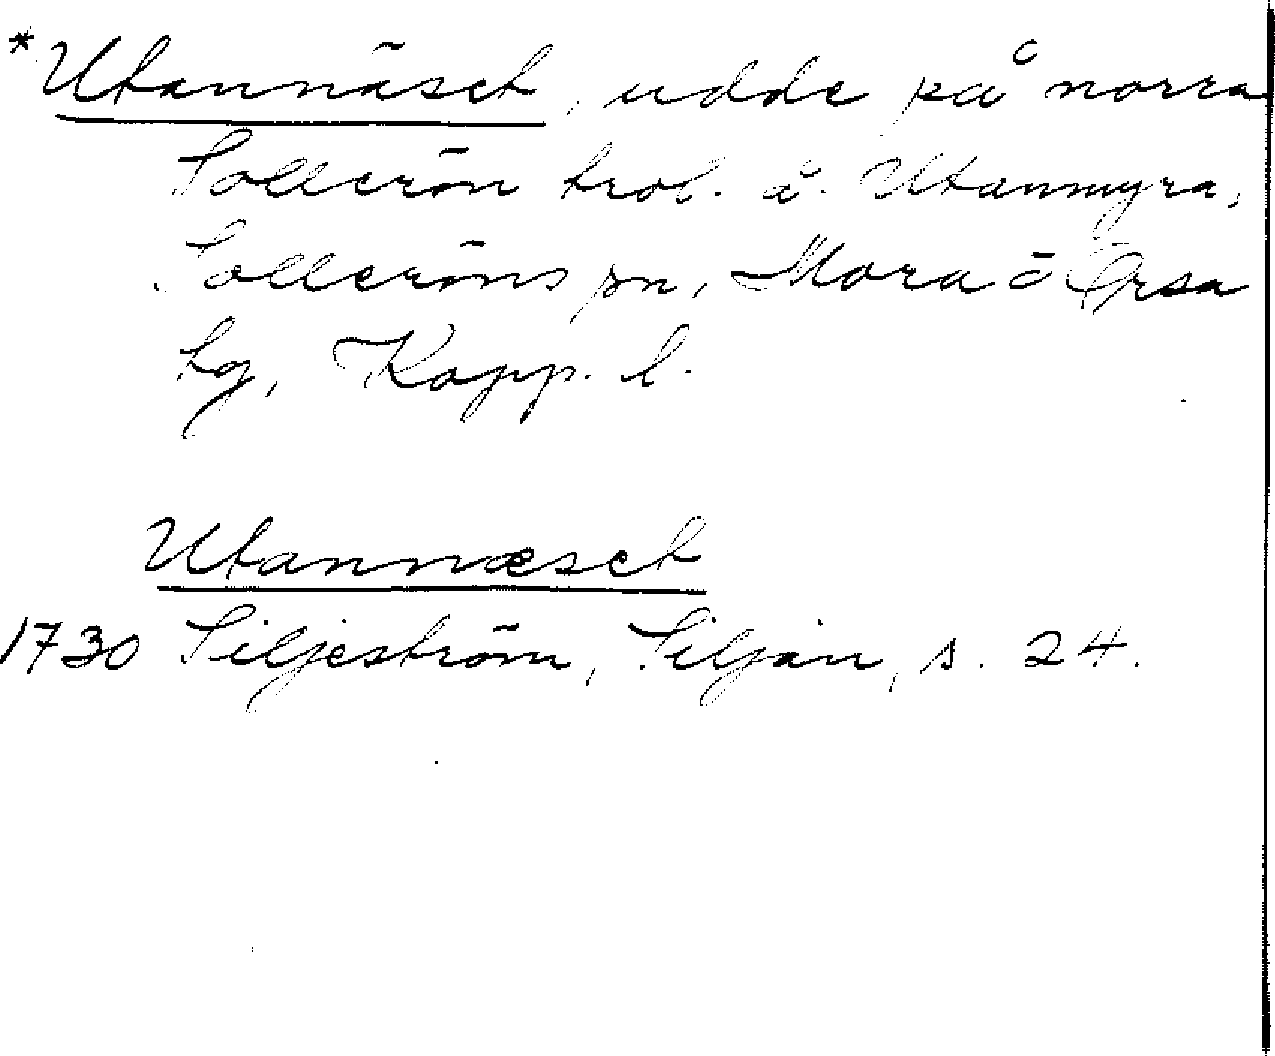 *Utannäset, udde på norra
Sollerön trol. å. Utanmyra,
Solleröns sn, Mora o Orsa
tg, Kopp. l.
Utannæset
1730 Siljeström, Siljan, s. 24.